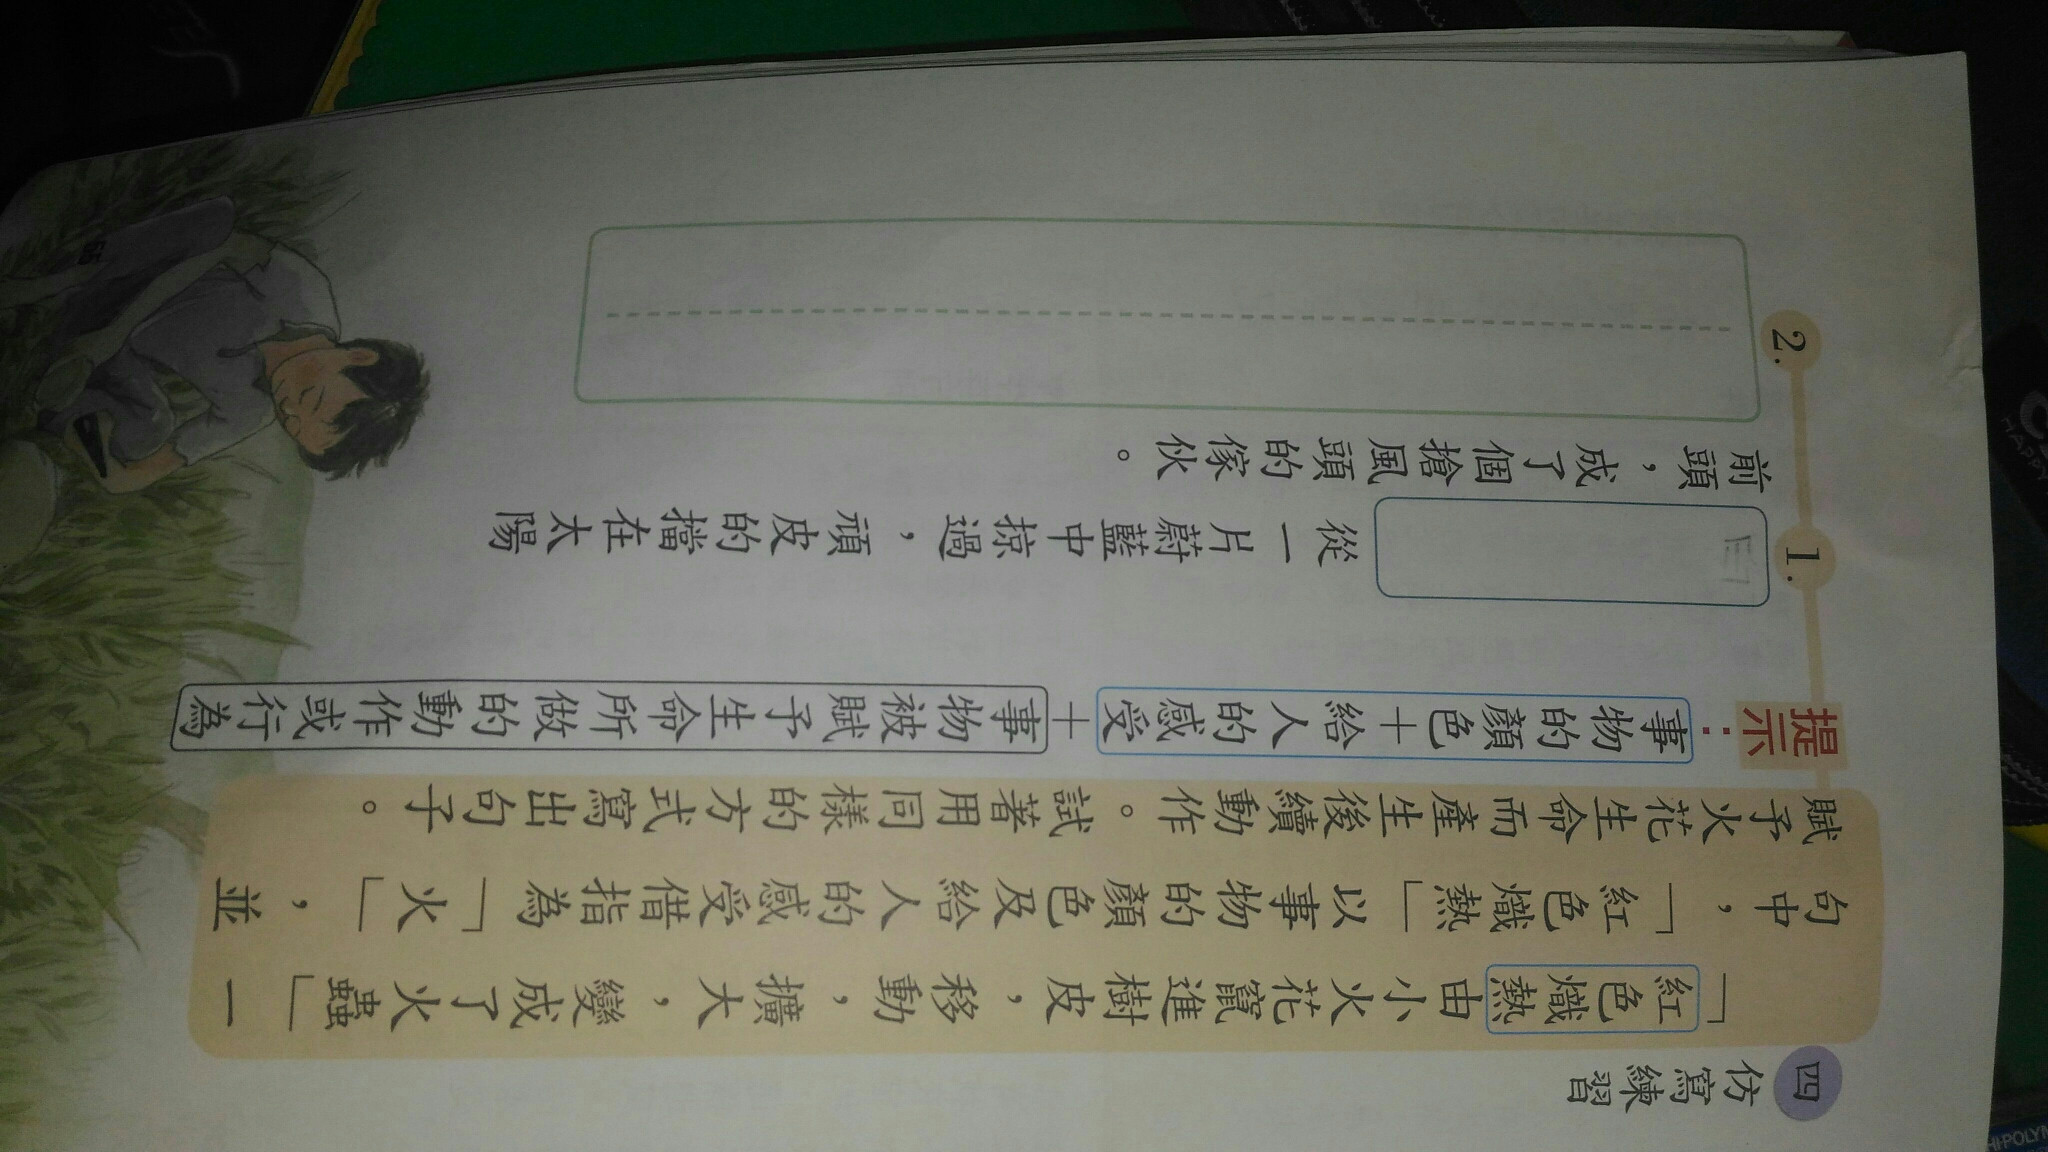 四 仿寫練習
「紅色熾熱由小火花竄進樹皮，移動，擴大，變成了火蟲」一
句中，「紅色熾熱」以事物的顏色及給人的感受借指為「火」，並
賦予火花生命而產生後續動作。試著用同樣的方式寫出句子。
提示：事物的顏色＋給人的感受＋事物被賦予生命所做的動作或行為
1. 從一片蔚藍中掠過，頑皮的擋在太陽
前頭，成了個搶風頭的傢伙。
2.
65
HAPPY